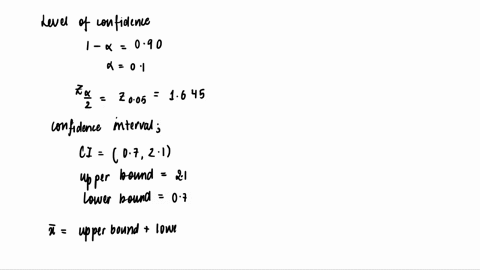 Level of confidence
1 - α = 0.90
α = 0.1
Zα/2 = Z0.05 = 1.645
confidence interval;
CI = (0.7, 2.1)
upper bound = 21
lower bound = 0.7
x̄ = upper bound + lowe